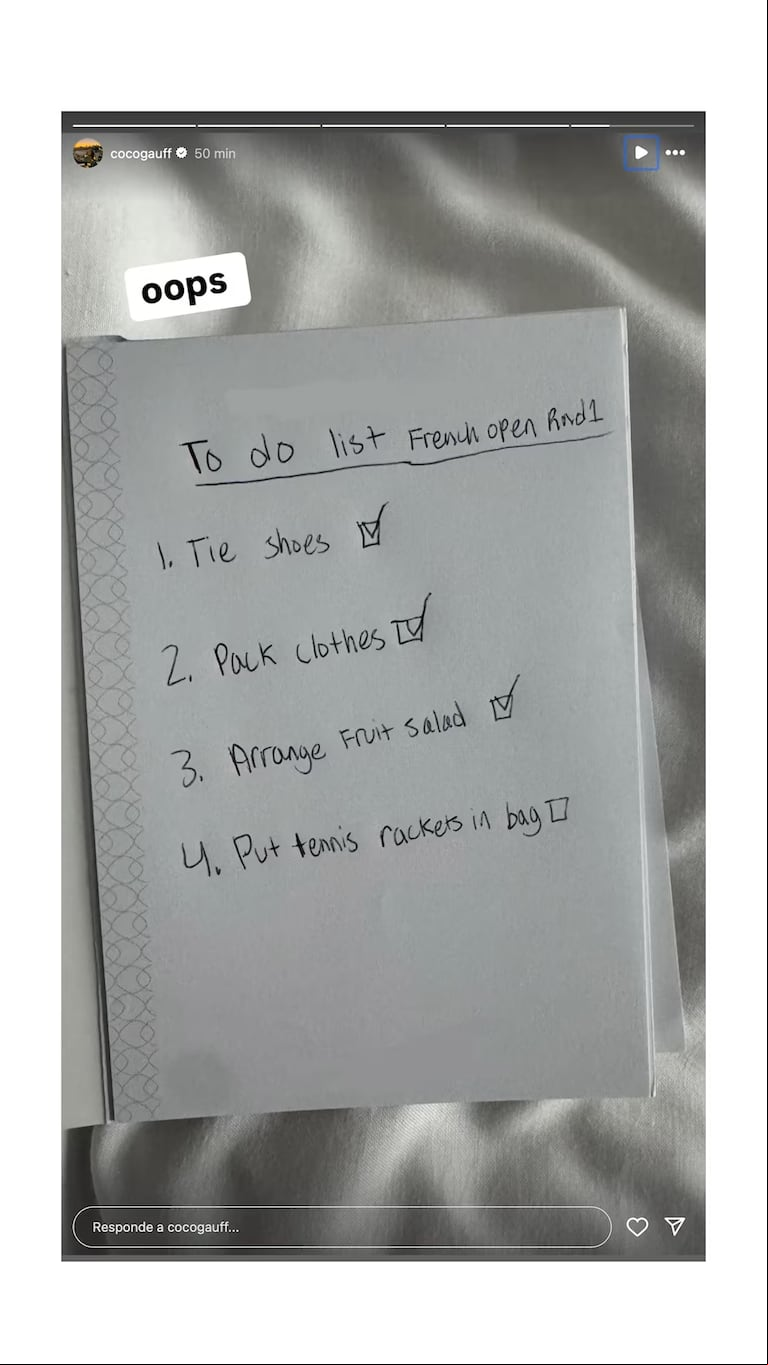 cocogauff 50 min
oops
To do list French open Rnd 1
1. Tie shoes
2. Pack clothes
3. Arrange Fruit salad
4. Put tennis rackets in bag
Responde a cocogauff...